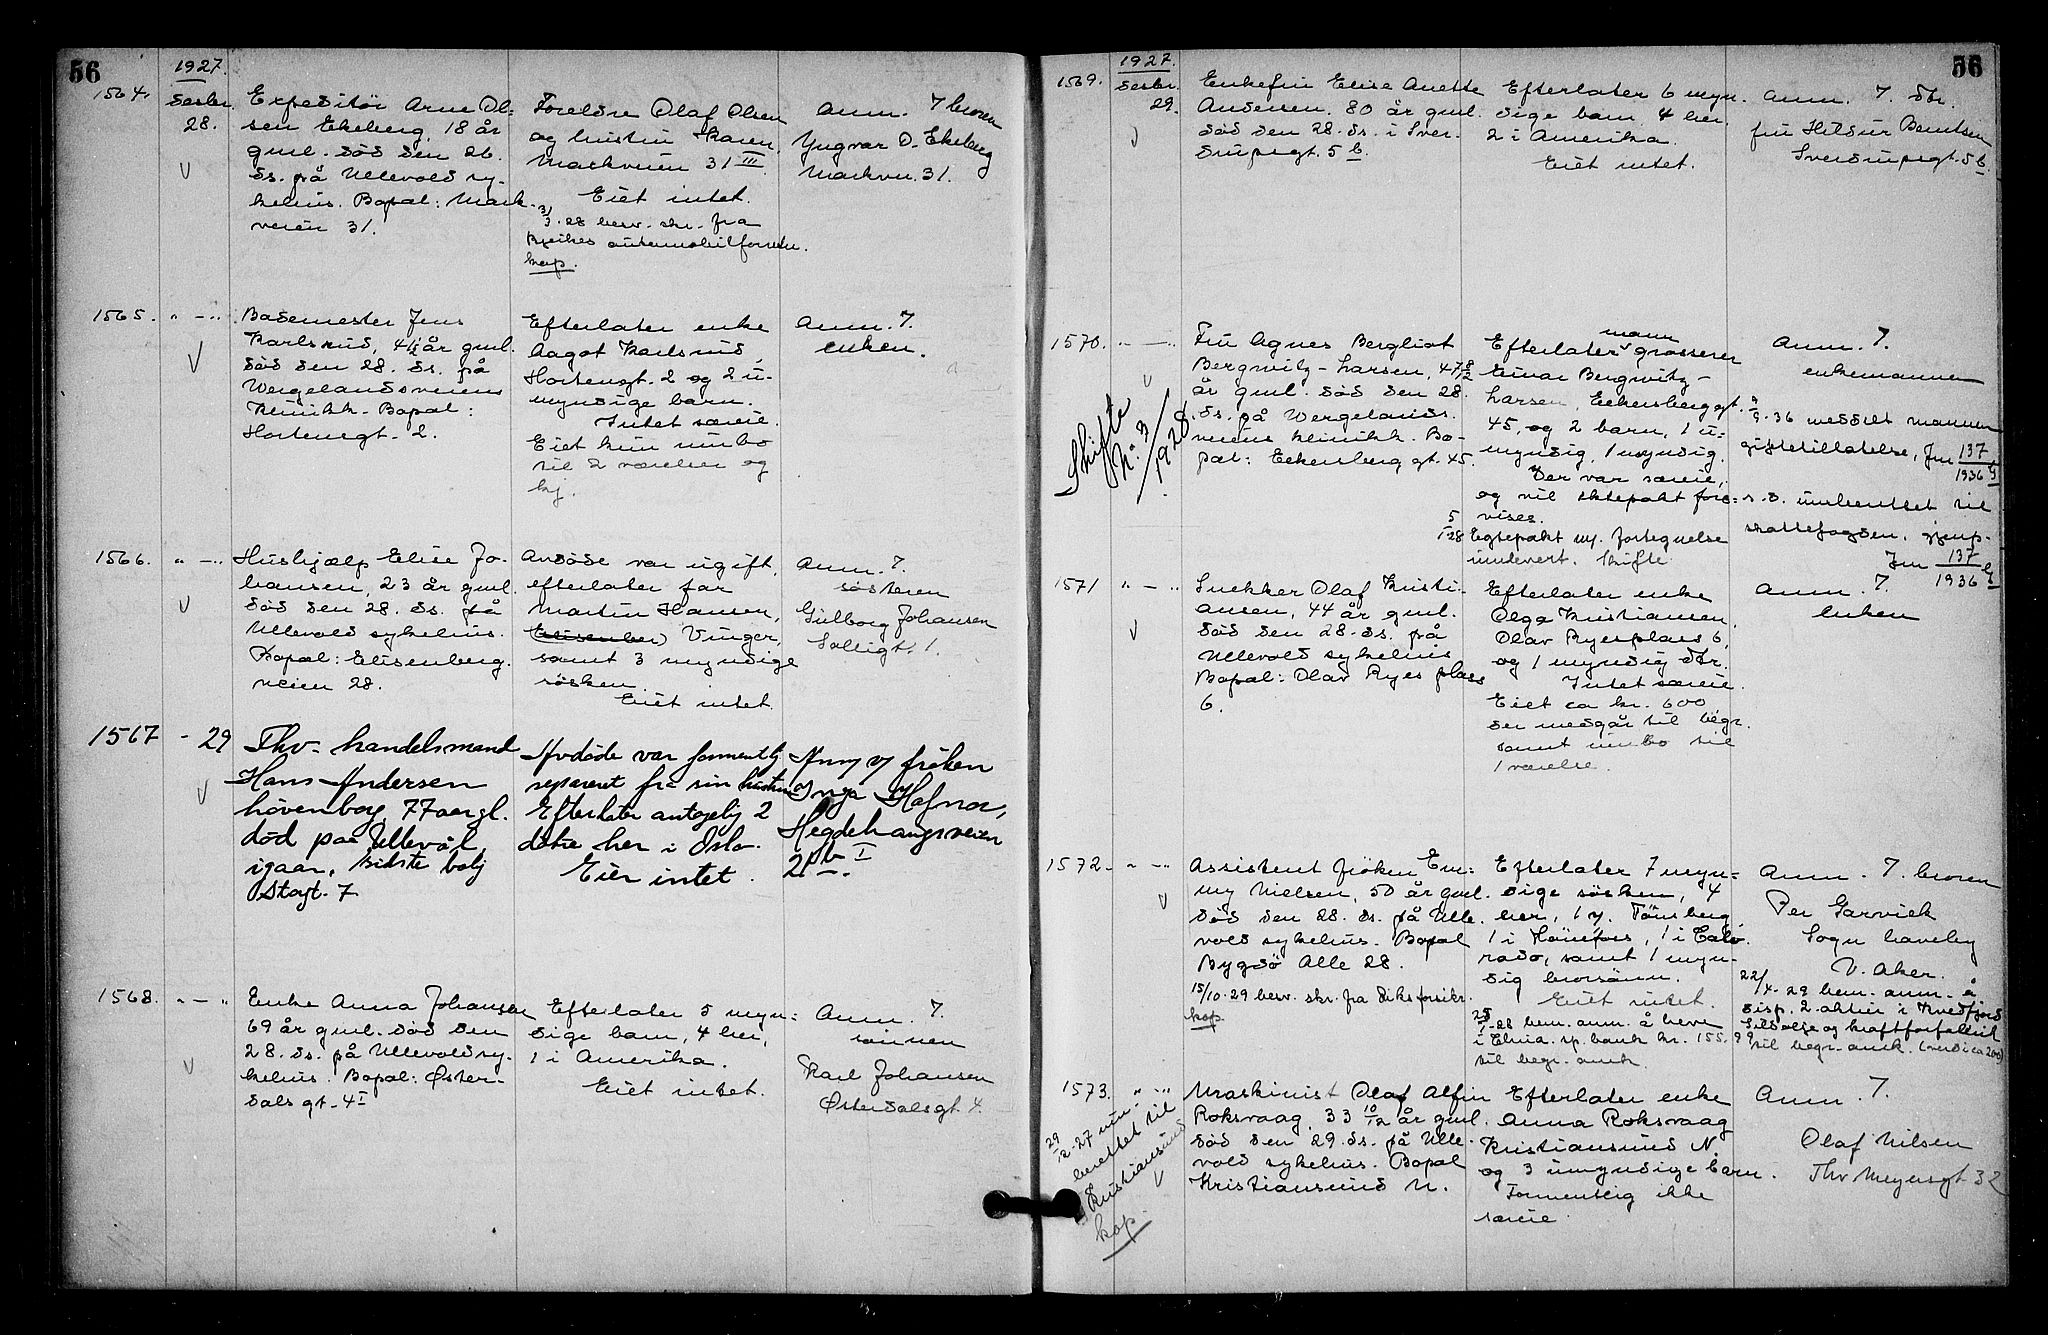 56
1927.
1564.
Desbr. 28.
Expeditör Arne Ol=
sen Ekeberg, 18 år
gml. död den 26.
ds. på Ullevold sy-
kehus. Bopal: Mark-
veien 31.
Foreldre Olaf Olsen
og hustru Karen,
Markveien 31 III
Eiet intet.
3/3-28 besv. skr. fra
automobilforret.
kop.
Anm. 7 broren
Yngvar O. Ekeberg
Markvn. 31.
1565. " - "
Bademester Jens
Karlsrud, 41 1/2 år gml.
död den 28. ds. på
Wergelandsveiens
Klinikk. Bopal:
Hortengt. 2.
Efterlater enke
Aagot Karlsrud,
Hortengt. 2 og 2 u-
myndige barn.
Intet særeie.
Eiet kun innbo
til 2 værelser og
kj.
Anm. 7.
enken.
1566. " - "
Hushjælp Elise Jo-
hansen, 23 år gml.
död den 28. ds. på
Ullevold sykehus.
Bopal: Elisenberg.
veien 28.
Avdöde var ugift,
efterlater far
Martin Hansen,
Vinger,
samt 3 myndige
søsken
Eiet intet.
Anm. 7.
søsteren
Gulborg Johansen
Solligt. 1.
1567 - 29
Fhv. handelsmand
Hans Andersen
Løvenborg, 77 aar gl.
död paa Ullevål
igaar, sidste bolig
Storgt. 7
Avdøde var formentlig
separeret fra sin hustru
Efterlater antagelig 2
døtre her i Oslo.
Eier intet.
Anm. v/ frøken
Inga Hafnor,
Hegdehaugsveien
2 I.
1568. " - "
Enke Anna Johansen
69 år gml. död den
28. ds. på Ullevold sy-
kehus. Bopal: Øster-
dals gt. 4 I
Efterlater 5 myn=
dige barn, 4 her,
1 i Amerika.
Eiet intet.
Anm. 7.
sönnen
Karl Johansen
Østerdalsgt. 4.
56
1927.
1569.
Desbr. 29.
Enkefru Elise Anette
Andersen, 80 år gml.
död den 28. ds. i Sver-
drupsgt. 5 b.
Efterlater 6 myn-
dige barn, 4 her,
2 i Amerika.
Eiet intet.
Anm. 7. dtr.
fru Hildur Berntsen
Sverdrupsgt. 5 b.
1570. " - "
Skifte
No. 3/1928.
Fru Agnes Bergliot
Bergwitz-Larsen, 47
år gml. död den 28.
ds. på Wergelands-
veiens klinikk. Bo-
pal: Eckersberg gt. 45.
Efterlater mann grosserer
Einar Bergwitz-
Larsen, Eckersberggt.
45, og 2 barn, 1 u-
myndig, 1 myndig.
Der var særeie,
og vil ektepakt fore-
vises.
5/1 28 Egtepakt m. fortegnelse
innlevert. Skifte
Anm. 7.
enkemannen
.36 meddelt mannen
giftetillatelse, Jnr 137/1936 G
s.d. innberettet til
skattefogden, gjenp.
Jnr 137/1936 G
1571 " - "
Snekker Olaf Kristi-
ansen, 44 år gml.
död den 28. ds. på
Ullevold sykehus
Bopal: Olav Ryes plass
6.
Efterlater enke
Olga Kristiansen,
Olav Ryesplass 6,
og 1 myndig dtr.
Intet særeie.
Eiet ca kr. 600
der medgår til begr.
samt innbo til
1 værelse.
Anm. 7.
enken
1572. " - "
Assistent fröken Em=
my Nielsen, 50 år gml.
död den 28. ds. på Ulle-
vold sykehus. Bopal
Bygdö Alle 28.
15/10-29 besv. skr. fra Riksforsikr.
kop.
Efterlater 7 myn=
dige sösken, 4
her, 1 v. Tönsberg
1 i Hönefoss, 1 i Colo-
rado, samt 1 myn-
dig brorsönn.
Eiet intet.
25/1-28 bem. anm. å heve
i sp. bank kr. 155.99
til begr. omk.
Anm. 7. broren
Per Garvick
Sogn haveby
V. Aker.
22/4-29 bem. anm. å
disp. 2 aktier i Kvedfjord
Sildolje og kraftforfabrik
til begr. omk. (verdi ca 200)
1573. " - "
29/12-27 inn-
berettet til
Kristiansund
kop.
Maskinist Olaf Alfin
Roksvaag, 33 10/12 år gml.
död den 29. ds. på Ulle-
vold sykehus. Bopal
Kristiansund N.
Efterlater enke
Anna Roksvaag
Kristiansund N.
og 3 umyndige barn.
Formentlig ikke
særeie.
Anm. 7.
Olaf Nilsen
Thv Meyersgt 32